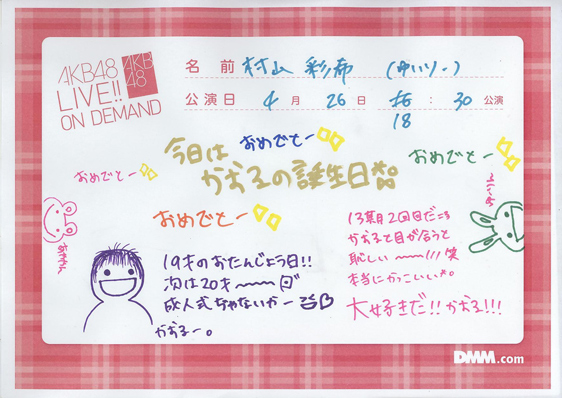 AKB48
LIVE!!
ON DEMAND
AKB
48
名前 村山 彩希 (ゆいりー)
公演日 4月 26日 18:30公演
今日は
かおるの誕生日
おめでとー
おめでとー
おめでとー
おめでとー
19才のおたんじょう日!!
次は20才〜〜〜
成人式ぢゃないかー
かおるー。
13期 2回目だころ
かおると目が合うと
恥しい〜〜///笑
本当にかっこいい
大好きだ!!かおる!!!
DMM.com